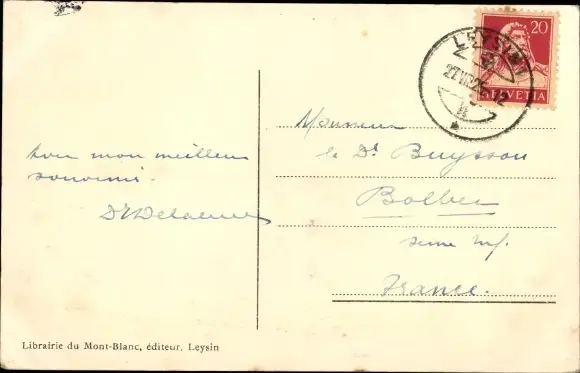 20
HELVETIA
LEYSIN
Monsieur
le Dr Buysson
Bolbec
Seine inf.
France.
mon meilleur
souvenir.
Librairie du Mont-Blanc, éditeur, Leysin